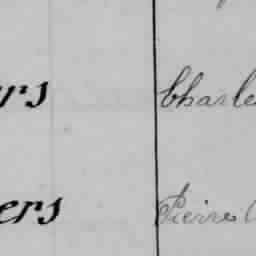 rs Charle
ers Pierre